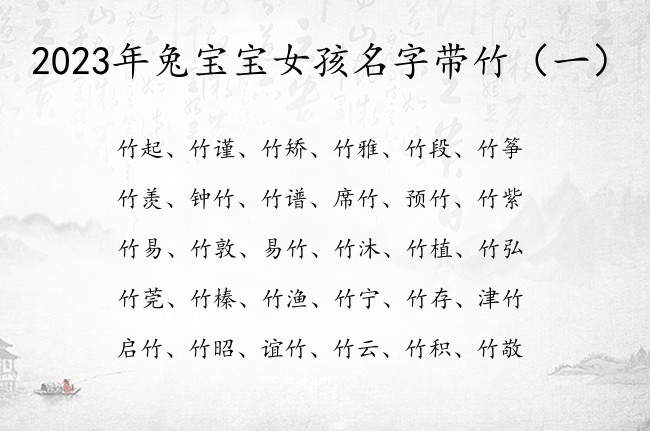 2023年兔宝宝女孩名字带竹（一）
竹起、竹谨、竹矫、竹雅、竹段、竹筝
竹羡、钟竹、竹谱、席竹、预竹、竹紫
竹易、竹敦、易竹、竹沐、竹植、竹弘
竹莞、竹榛、竹渔、竹宁、竹存、津竹
启竹、竹昭、谊竹、竹云、竹积、竹敬